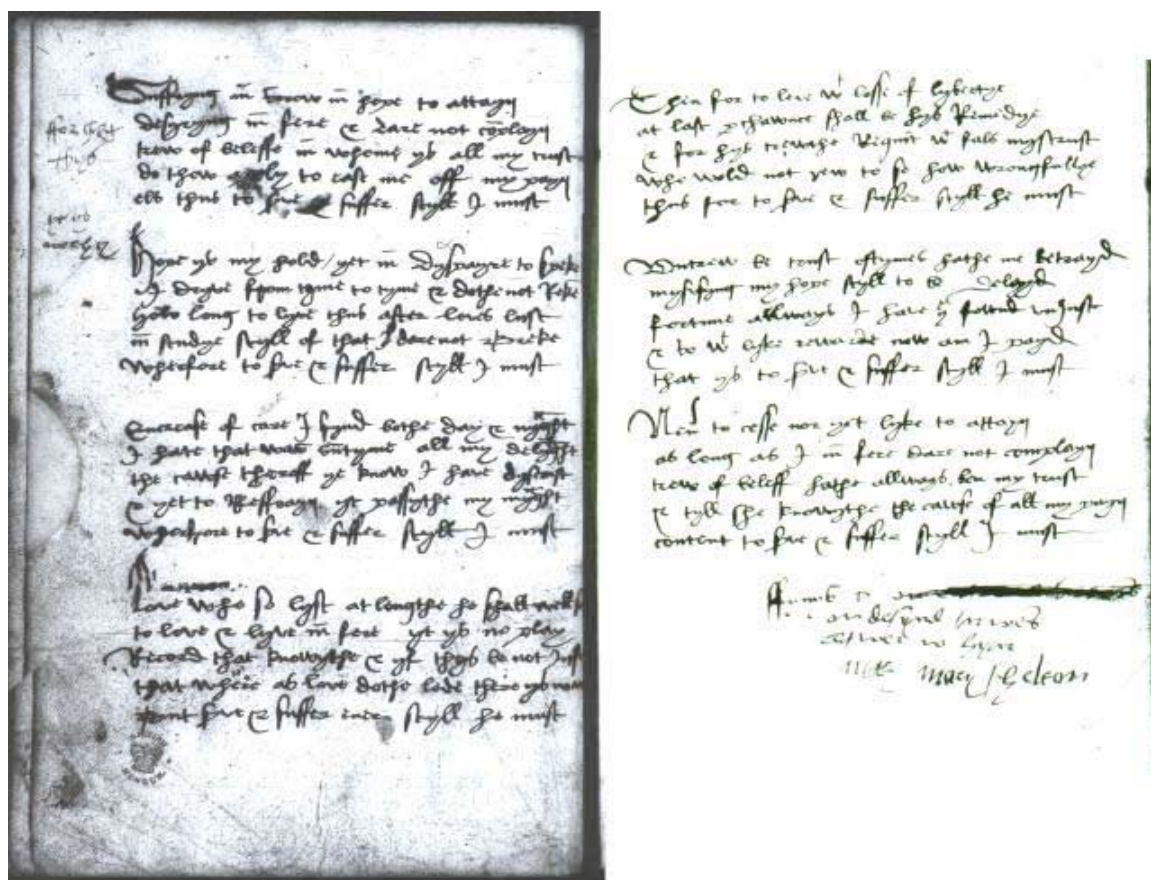 fforget
thys
yt ys
worthy
Suffryng in sorow in hope to attayn
desyryng in fere & dare not coplayn
trew of beleffe in whome ys all my trust
do thow apply to ease me off my payn
els thus to & suffer styll I must
Hope ys my hold / yet in dyspayre to speke
I dryve from tyme to tyme & dothe not Reke
how long to lyve thus after loves lust
in studye styll of that I dare not breke
wherfore to & suffer styll I must
Encrease of care I fynd bothe day & nyght
I hate that was all my delyght
the cawse theroff ye know I have dyscust
& yet to Reffrayn yt passythe my myght
wherfore to & suffer styll I must
Love who so lyst at lengthe he shall well
to love & lyve in fere yt ys no play
Record that knowythe & yf thys be not Just
that where as love dothe lede there ys no
but & suffer ever styll he must
Then for to leve wt losse of lybertye
at last perchawnce shall be hys Remedye
& for hys trewthe Requit wt fals mystrust
who wold not rew to se how wrongfullye
thus for to & suffer styll he must
Untrew be trust oftymes hathe me betrayd
mysusyng my hope styll to be delayd
fortune allways I have ye fownd unjust
& so wt lyke rewarde now am I payd
that ys to & suffer styll I must
Never to cesse nor yet lyke to attayn
as long as I in fere dare not complayn
trew of beleff hathe allways ben my trust
& tyll she knowythe the cawse of all my payn
content to & suffer styll I must
ondesyrd
mary shelton